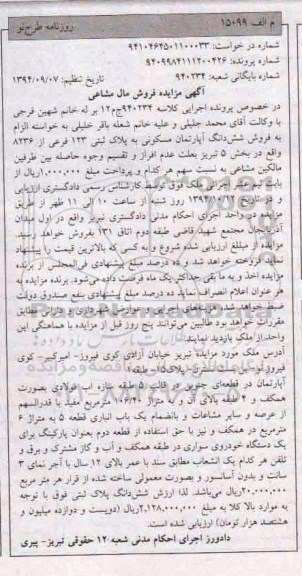 م الف ۱۵۰۹۹ روزنامه طرح‌نو
شماره درخواست: ۹۴۱۰۴۶۴۵۰۱۱۰۰۰۳۳
شماره پرونده: ۹۴۰۹۹۸۴۱۱۱۲۰۰۴۲۶
شماره بایگانی شعبه: ۹۴۰۲۳۴ تاریخ تنظیم: ۱۳۹۴/۰۹/۰۷
آگهی مزایده فروش مال مشاعی
در خصوص پرونده اجرایی کلاسه ۹۴۰۲۳۴ج‌م۱۲ بر له خانم شهین فرجی
با وکالت آقای محمد جلیلی و علیه خانم شعله باقر خلیلی به خواسته الزام
به فروش شش‌دانگ آپارتمان مسکونی به پلاک ثبتی ۱۲۳ فرعی از ۸۲۳۶
واقع در بخش ۵ تبریز بعلت عدم افراز و تقسیم وجوه حاصله بین طرفین
مالکین مشاعی به نسبت سهم هر کدام و پرداخت مبلغ ۱,۰۰۰,۰۰۰ریال از
بابت نیم عشر اجرائی ملک فوق توسط کارشناس رسمی دادگستری ارزیابی
و در تاریخ ۱۳۹۴/ روز شنبه از ساعت ۱۰ الی ۱۱ ظهر از طریق
مزایده در واحد اجرای احکام مدنی دادگستری تبریز واقع در اول میدان
آذربایجان مجتمع شهید قاضی طبقه دوم اتاق ۱۳۱ بفروش خواهد رسید.
مزایده از مبلغ ارزیابی شده شروع و به کسی که بالاترین قیمت را پیشنهاد
نماید فروخته خواهد شد و ده درصد مبلغ پیشنهادی فی‌المجلس از برنده
مزایده اخذ و به ما بقی حداکثر یک ماه فرصت داده می‌شود. برنده مزایده به
هر عنوان اعلام انصراف نماید ده درصد مبلغ پیشنهادی بنفع صندوق دولت
ضبط خواهد شد و هزینه‌های اجرایی و عوارض شهرداری و دارائی مطابق
مقررات خواهد بود طالبین می‌توانند پنج روز قبل از مزایده با هماهنگی این
واحد از ملک بازدید نمایند.
آدرس ملک مورد مزایده تبریز خیابان آزادی کوی فیروز- امیرکبیر- کوی
فیروز پلاک ۱۵ طبقه
آپارتمان در قطعه‌ای جنوبی در قالب ۵ طبقه سازه اب فولادی بصورت
همکف و ۴ طبقه بالای آن و با متراژ ۱۰۶/۴۰ متر مربع مفید با قدرالسهم
از عرصه و سایر مشاعات و بانضمام یک باب انباری قطعه ۵ به متراژ ۶
مترمربع در همکف و نیز با حق استفاده از قطعه دوم بعنوان پارکینگ برای
یک دستگاه خودروی سواری در طبقه همکف و آب و گاز مشترک و برق و
تلفن هر کدام یک انشعاب مطابق سند با عمر بالای ۱۲ سال با آجر نمای ۳
سانت و بدون آسانسور و بصورت معمولی ساخته شده از قرار هر متر مربع
۲۰,۰۰۰,۰۰۰ریال می‌باشد. لذا ارزش شش‌دانگ پلاک ثبتی فوق با توجه
به موارد بالا کلا به مبلغ ۲,۱۲۸,۰۰۰,۰۰۰ریال (دویست و دوازده میلیون و
هشتصد هزار تومان) ارزیابی شده است.
دادورز اجرای احکام مدنی شعبه ۱۲ حقوقی تبریز- پیری